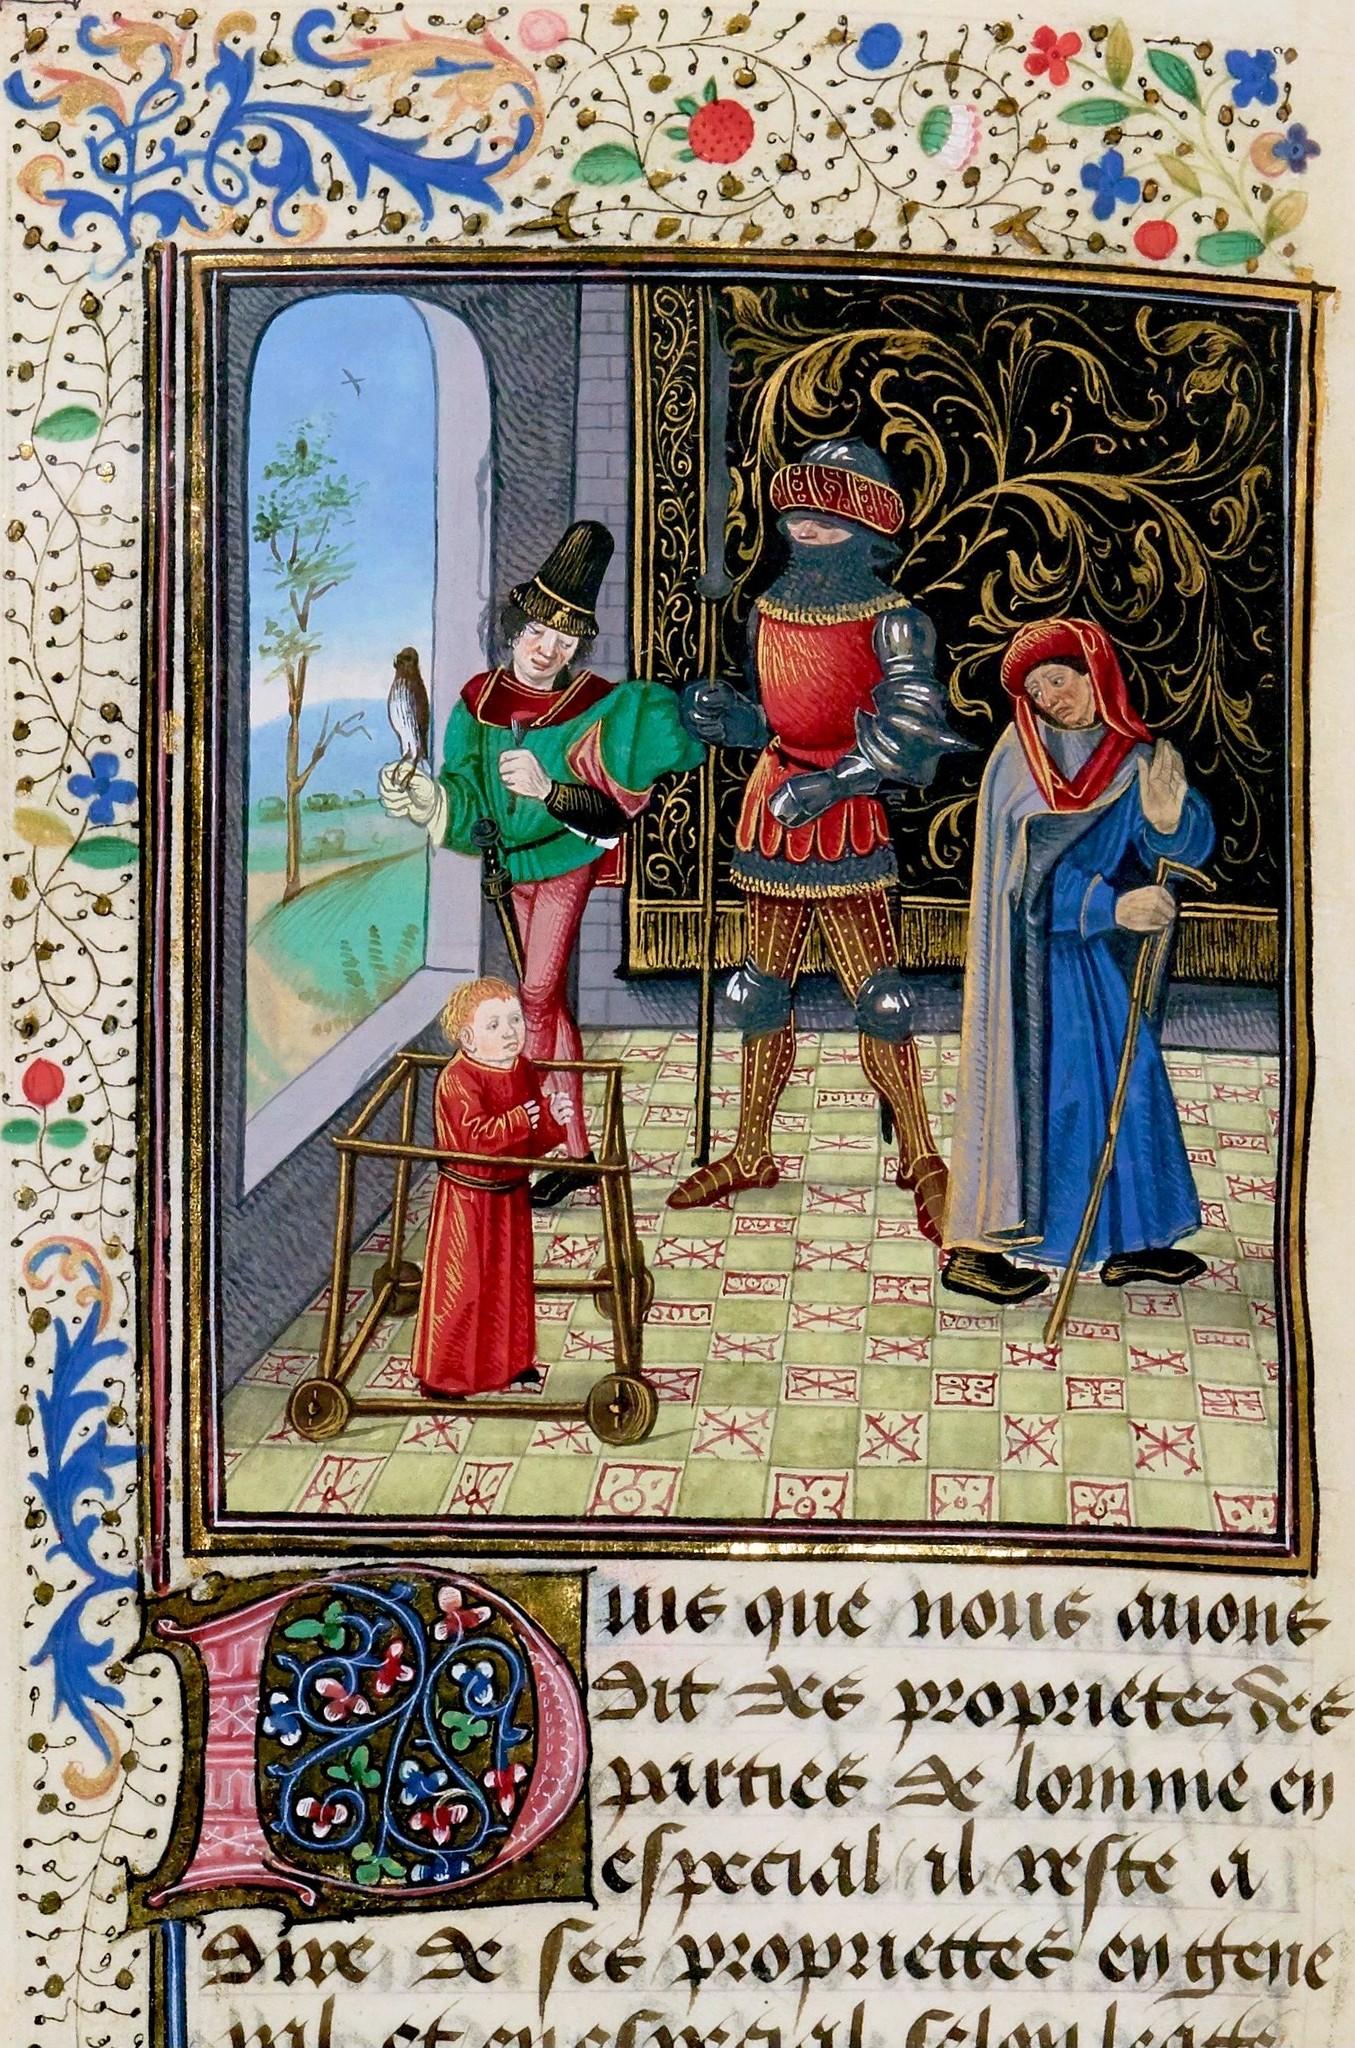 Puis que nous auons
dit des proprietez des
parties de lomme en
especial il reste a
dire de ses propriettes en gene
ral et en especial selon